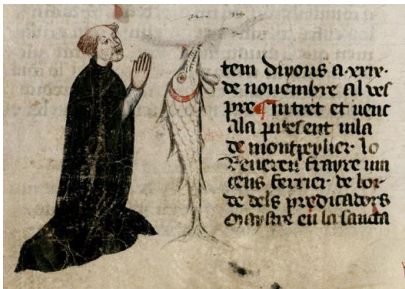 tem divous a.xxix.
de nouembre al ves
pre intret et venc
ala present vila
de montpeylier lo
Reueren frayre vin
cens ferrier de lor
de dels predicadors
maystre en la sancta